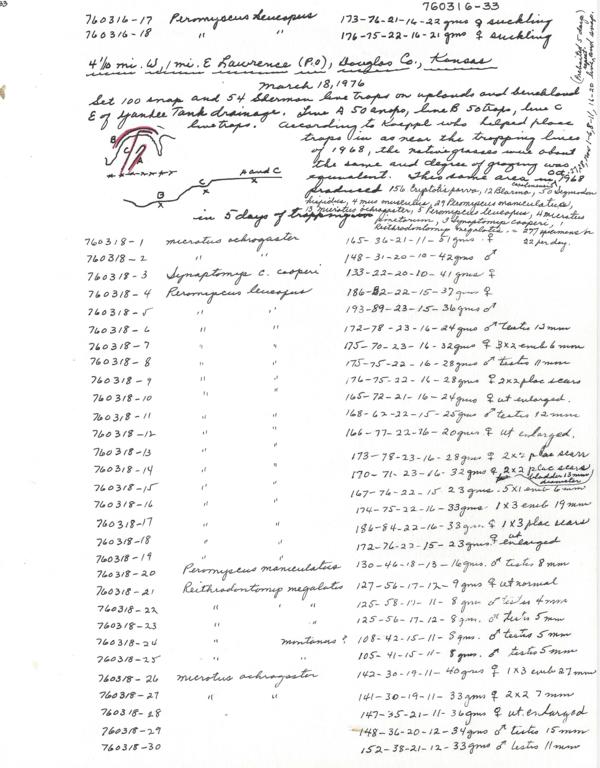 33
760316-33
760316-17 Peromyscus leucopus 173-76-21-16-22 gms ♀ suckling
760316-18 " " 176-75-22-16-21 gms ♀ suckling
4½ mi. W, 1 mi. E Lawrence (P.O), Douglas Co., Kansas
March 18, 1976
Set 100 snap and 54 Sherman live traps on uplands and benchland
E of Yankee Tank drainage. Line A 50 snaps, line B 50 traps, line C
live traps. According to Koeppl who helped place
traps in as near the trapping lines
of 1968, the native grasses were about
the same and degree of grazing was
equivalent. This same area in Oct 1968
produced 156 Cryptotis parva, 12 Blarina, 50 Sigmodon
hispidus, 4 mus musculus, 29 Peromyscus maniculatus,
13 microtus ochrogaster, 5 Peromyscus leucopus, 4 microtus
pinetorum, 3 Synaptomys cooperi,
in 5 days of trapping Reithrodontomys megalotis. = 277 specimens or
22 per day.
B C A
A and C
C
B
760318-1 microtus ochrogaster 165-36-21-11-51 gms ♀
760318-2 " " 148-31-20-10-42 gms ♂
760318-3 Synaptomys c. cooperi 133-22-20-10-41 gms ♀
760318-4 Peromyscus leucopus 186-82-22-15-37 gms ♀
760318-5 " " 193-89-23-15-36 gms ♂
760318-6 " " 172-78-23-16-24 gms ♂ testis 12 mm
760318-7 " " 175-70-23-16-32 gms ♀ 3x2 emb 6 mm
760318-8 " " 175-75-22-16-28 gms ♂ testis 11 mm
760318-9 " " 176-75-22-16-28 gms ♀ 2x2 plac scars
760318-10 " " 165-72-21-16-24 gms ♀ ut enlarged.
760318-11 " " 168-62-22-15-25 gms ♂ testis 12 mm
760318-12 " " 166-77-22-16-20 gms ♀ ut enlarged.
760318-13 " " 173-78-23-16-28 gms ♀ 2x2 plac scars
760318-14 " " 170-71-23-16-32 gms ♀ 2x2 plac scars
bladder 13 mm diameter
760318-15 " " 167-76-22-15 23 gms. 5x1 emb 6 mm
760318-16 " " 174-75-22-16-33 gms. 1x3 emb 19 mm
760318-17 " " 186-84-22-16-33 gms. ♀ 1x3 plac scars
760318-18 " " 172-76-22-15-23 gms ♀ ut enlarged
760318-19 " "
760318-20 Peromyscus maniculatus 130-46-18-13-16 gms. ♂ testis 8 mm
760318-21 Reithrodontomys megalotis 127-56-17-12-9 gms ♀ ut normal
760318-22 " " 125-58-17-11-8 gms ♂ testis 4 mm
760318-23 " " 125-56-17-12-8 gms. ♂ testis 5 mm
760318-24 " montanus? 108-42-15-11-8 gms. ♂ testis 5 mm
760318-25 " " 105-41-15-11-8 gms. ♂ testis 5 mm
760318-26 microtus ochrogaster 142-30-19-11-40 gms ♀ 1x3 emb 27 mm
760318-27 " " 141-30-19-11-33 gms ♀ 2x2 7 mm
760318-28 147-35-21-11-36 gms ♀ ut. enlarged
760318-29 148-36-20-12-34 gms ♂ testis 15 mm
760318-30 152-38-21-12-33 gms ♂ testis 11 mm